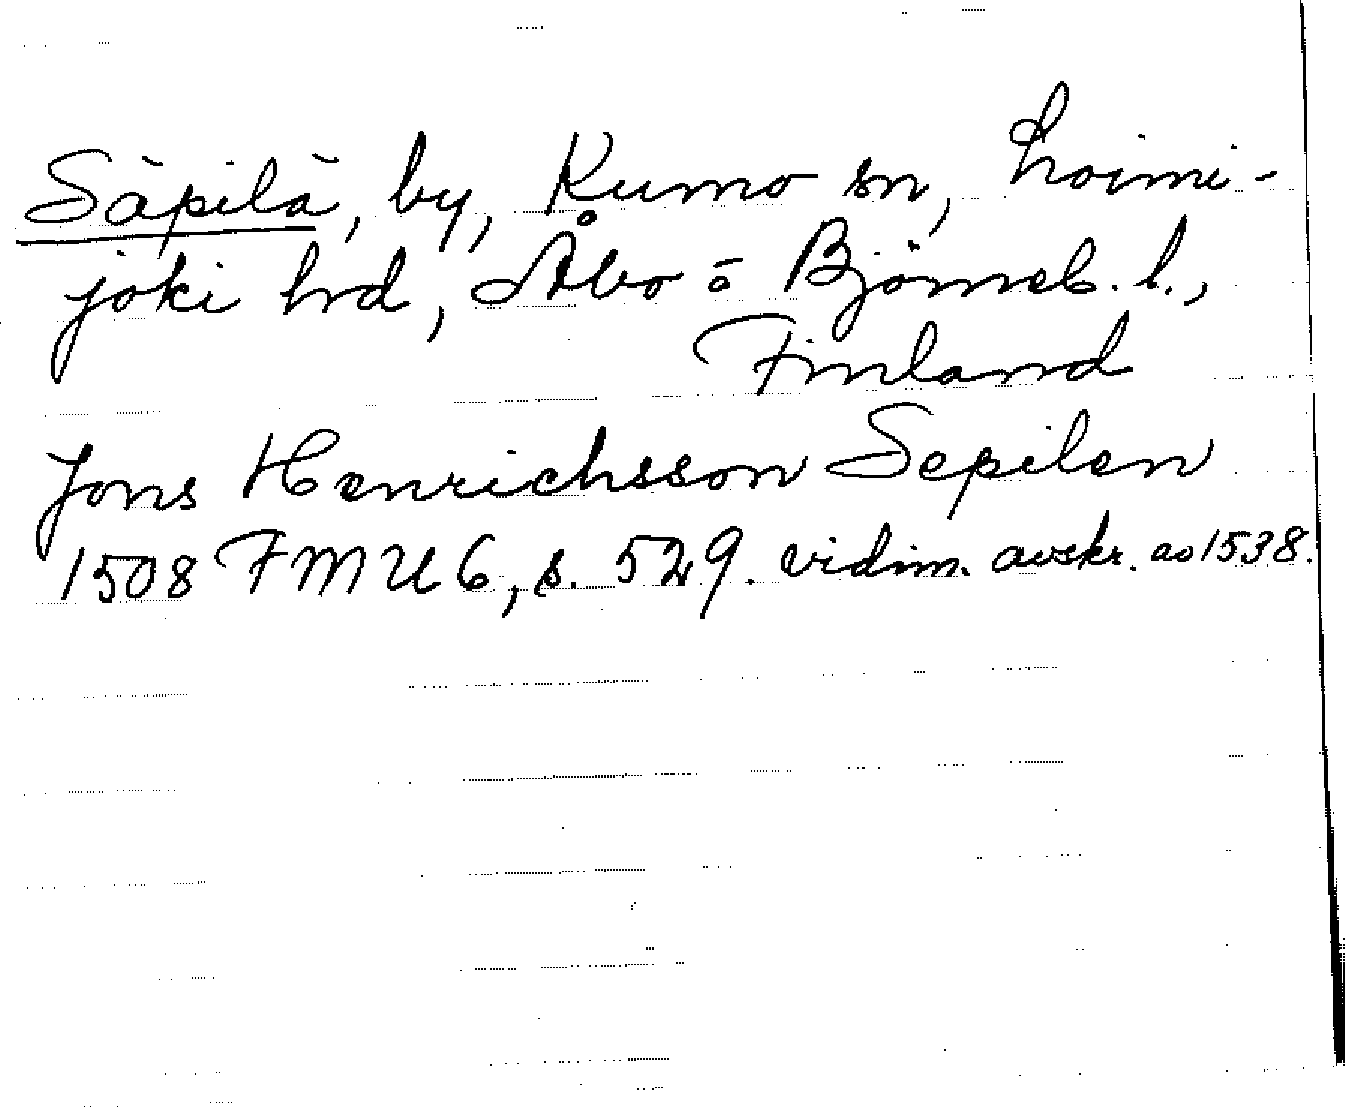 Säpilä, by, Kumo sn, Loimi-
joki hrd, Åbo-o Björneb. l.,
Finland
Jöns Henrichsson Sepilen
1508 FMU 6, s. 529. vidim. avskr. av 1538.